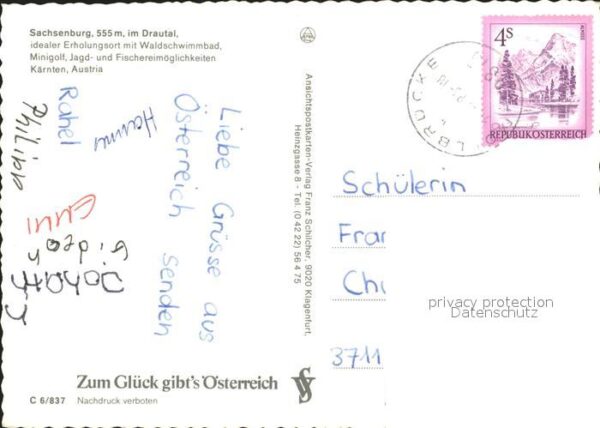 Sachsenburg, 555 m, im Drautal,
idealer Erholungsort mit Waldschwimmbad,
Minigolf, Jagd- und Fischereimöglichkeiten
Kärnten, Austria
Liebe Grüsse aus
Österreich senden
Hannes
Rahel
Philipp
Gideon
Jonathan
Zum Glück gibt's Österreich
C 6/837 Nachdruck verboten
Ansichtspostkarten-Verlag Franz Schilcher, 9020 Klagenfurt,
Heinzgasse 8 - Tel. (0 42 22) 56 4 75
4S
ALMSEE
REPUBLIK ÖSTERREICH
LBRÜCKE
Schülerin
Fran
Chr
3711
privacy protection
Datenschutz